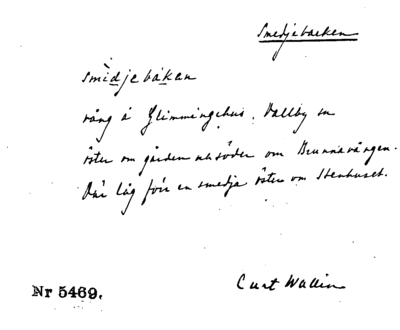 Smedjebacken
smìdjebákan
vång å Glimmingehus, Vallby sn
öster om gården och söder om Brunnavången.
Där låg förr en smedja öster om Stenhuset.
Curt Wallin
Nr 5469.